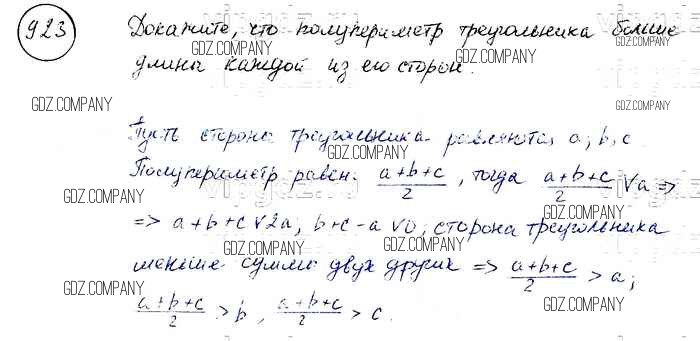 923
Докажите, что полупериметр треугольника больше
длины каждой из его сторон.
Пусть стороны треугольника равняются a, b, c
Полупериметр равен (a+b+c)/2, тогда (a+b+c)/2 V a =>
=> a+b+c V 2a; b+c-a V 0; сторона треугольника
меньше суммы двух других => (a+b+c)/2 > a;
(a+b+c)/2 > b, (a+b+c)/2 > c.
GDZ.COMPANY
GDZ.COMPANY
GDZ.COMPANY
GDZ.COMPANY
GDZ.COMPANY
GDZ.COMPANY
GDZ.COMPANY
GDZ.COMPANY
GDZ.COMPANY
GDZ.COMPANY
GDZ.COMPANY
GDZ.COMPANY